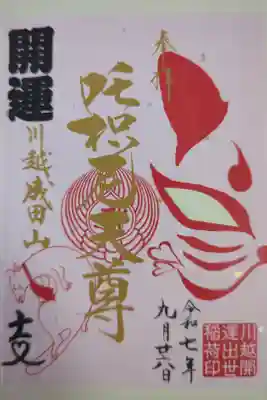 奉拝
開運
吒枳尼天尊
川越成田山
令和七年
九月廿八日
川越開
運出世
稲荷印